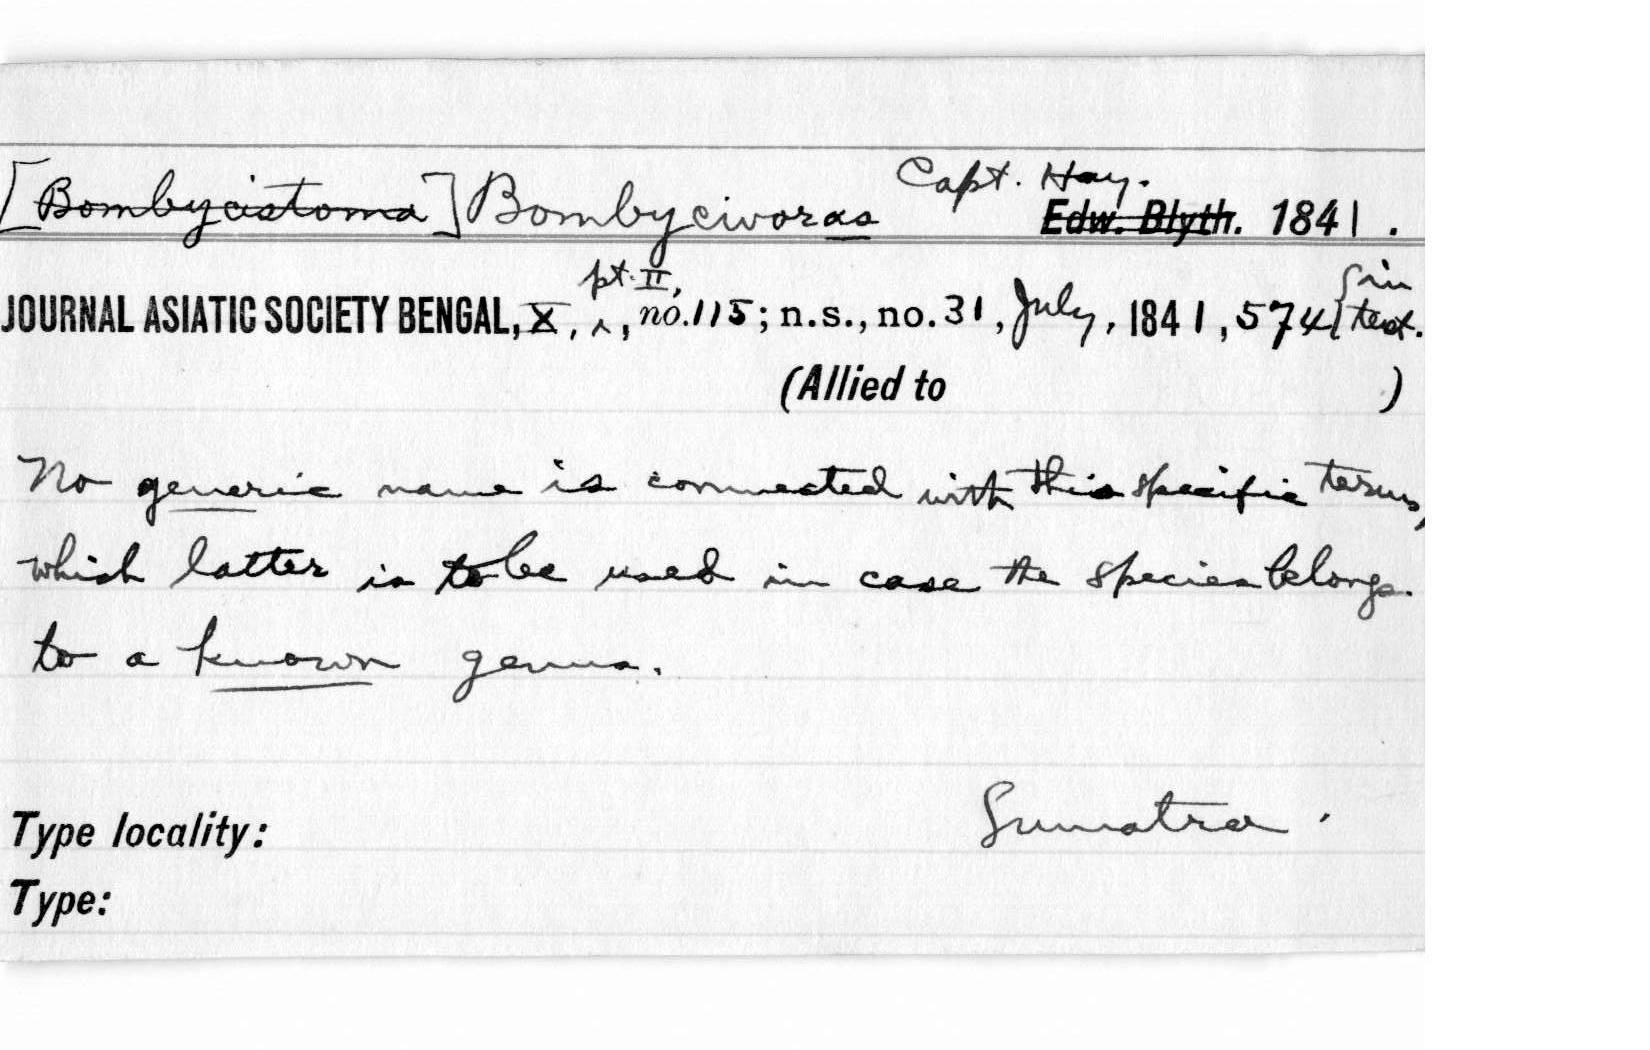 [Bombycistoma] Bombycivoras Capt. Hay.
Edw. Blyth. 1841.
JOURNAL ASIATIC SOCIETY BENGAL, X, pt. II, no. 115; n.s., no. 31, July, 1841, 574 {in text.
(Allied to )
No generic name is connected with this specific term,
which latter is to be used in case the species belongs
to a known genus.
Type locality: Sumatra.
Type: